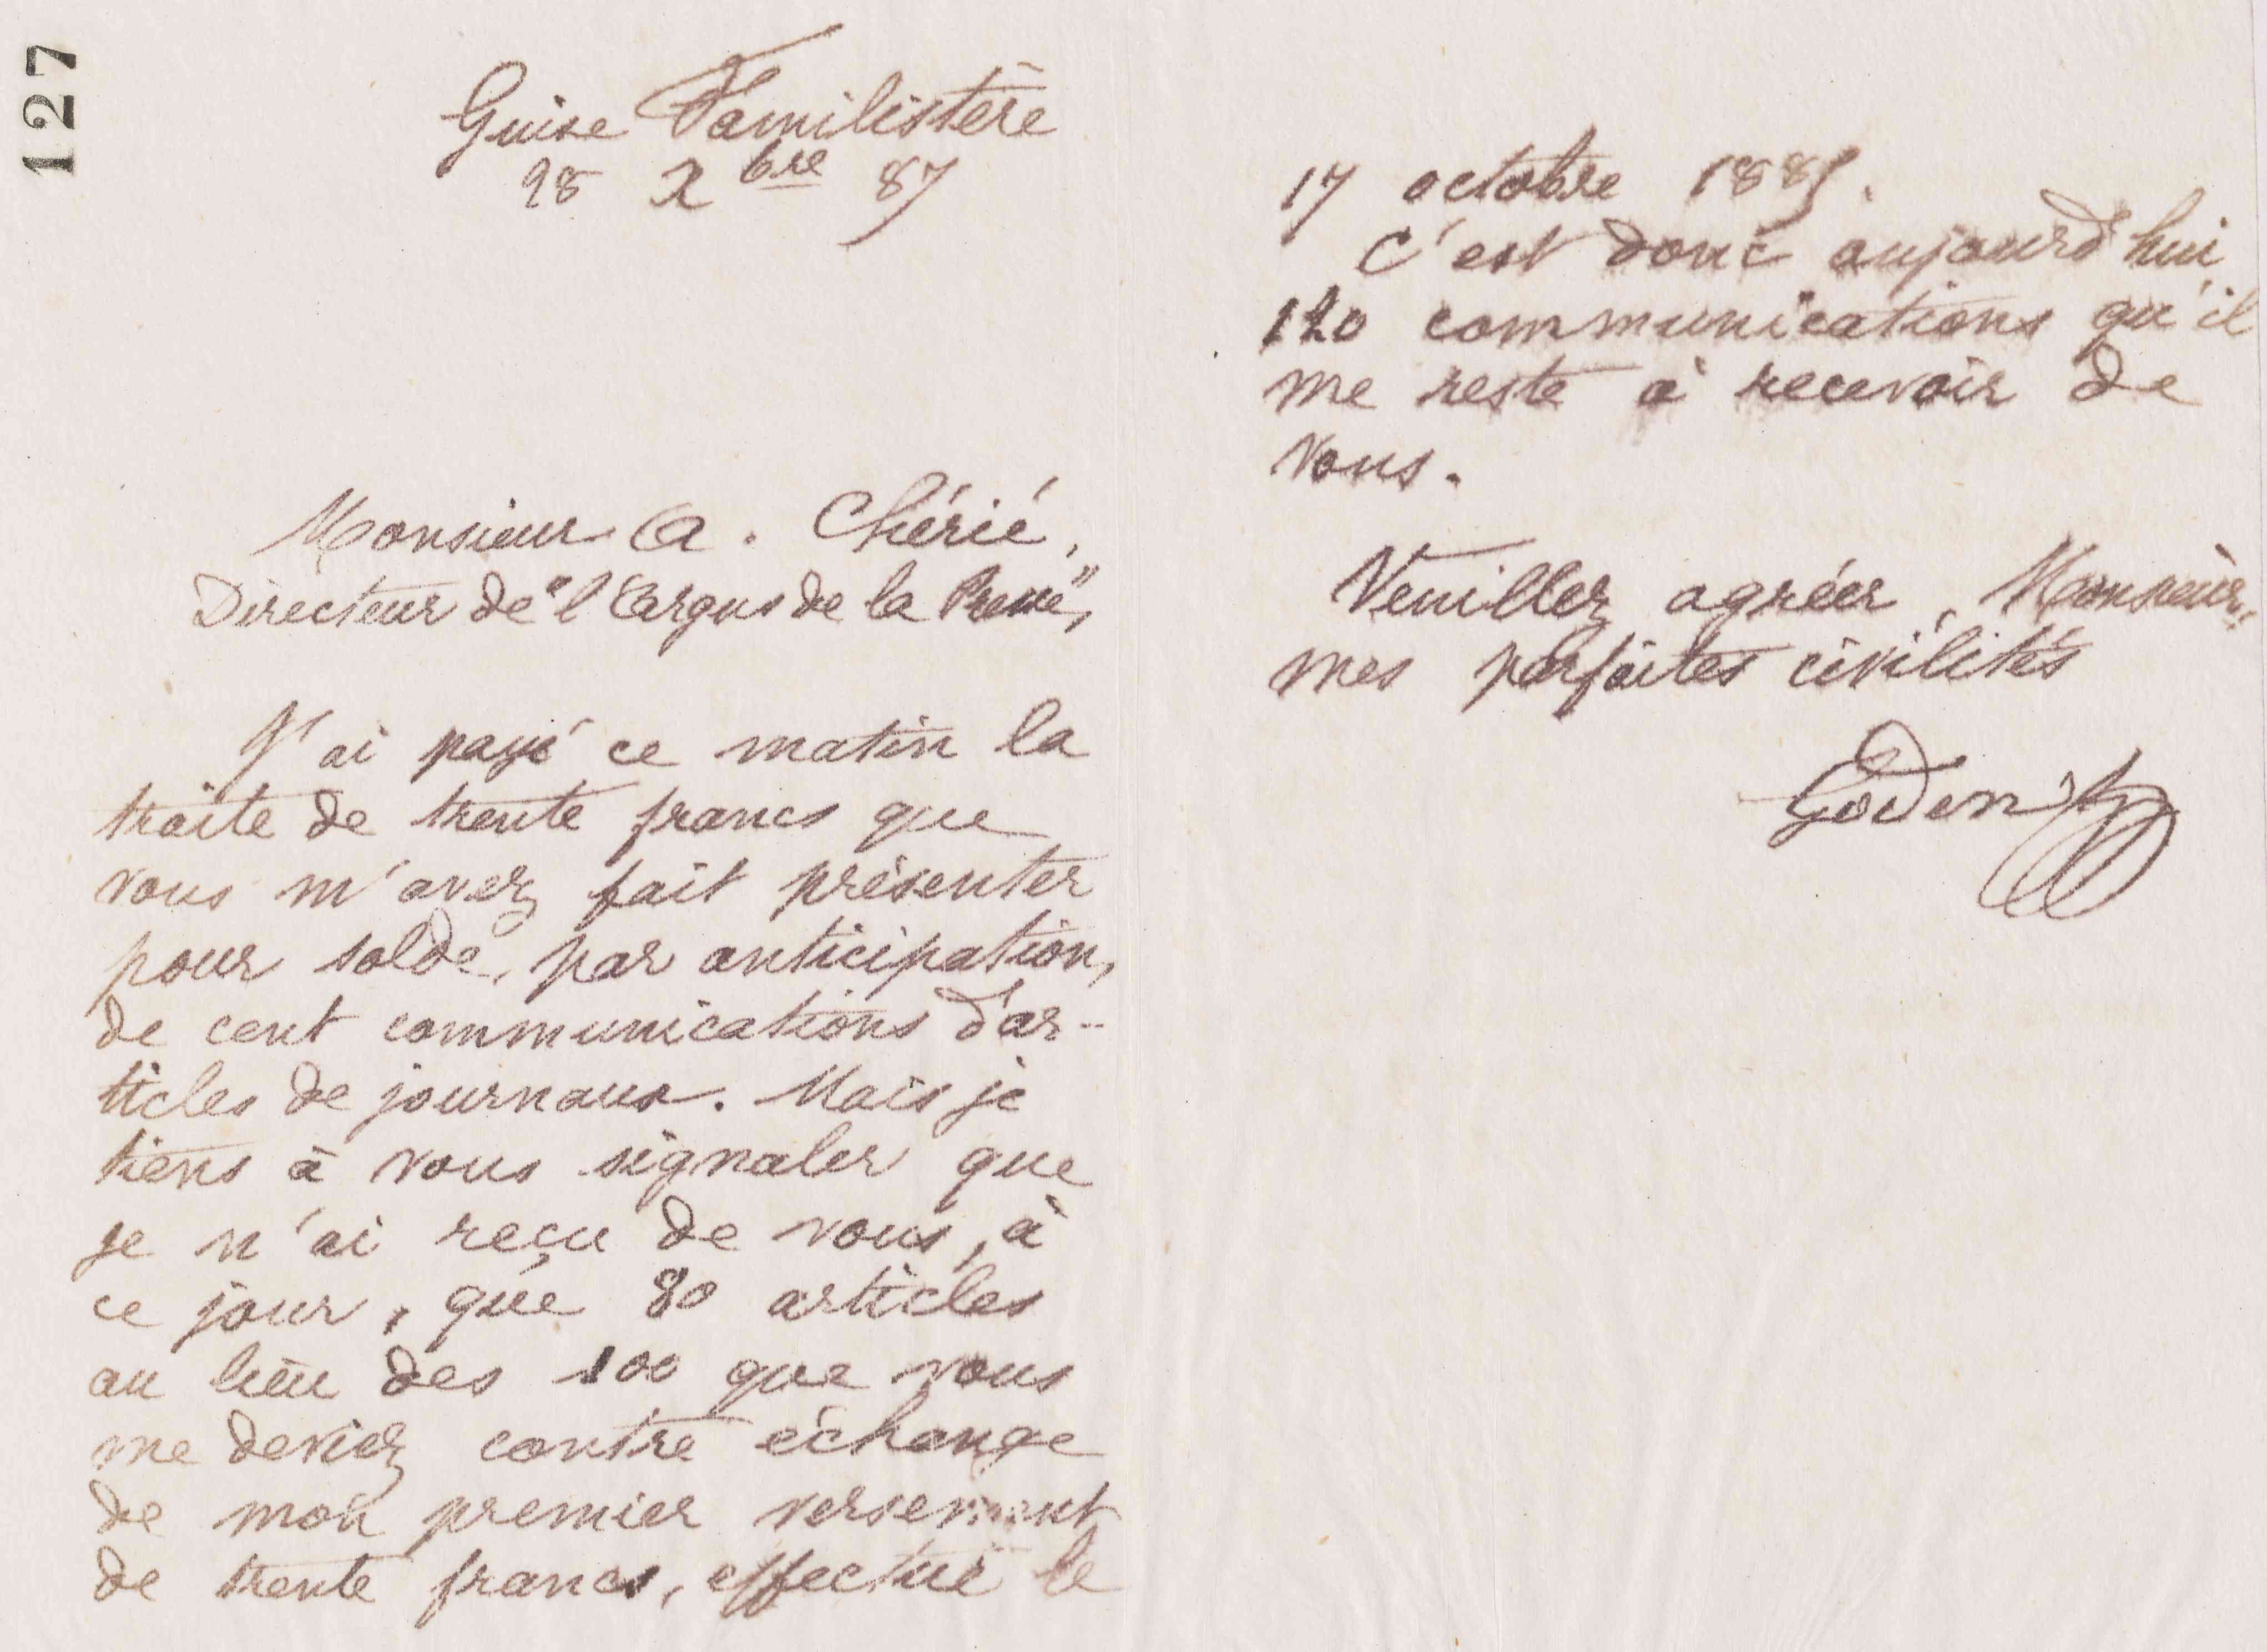 127
Guise Familistère
28 Xbre 87
Monsieur A. Chérié,
Directeur de "l'Argus de la Presse",
J'ai payé ce matin la
traite de trente francs que
vous m'avez fait présenter
pour solde, par anticipation,
de cent communications d'ar-
ticles de journaux. Mais je
tiens à vous signaler que
je n'ai reçu de vous, à
ce jour, que 80 articles
au lieu des 100 que vous
me deviez contre échange
de mon premier versement
de trente francs, effectué le
17 octobre 1885.
C'est donc aujourd'hui
120 communications qu'il
me reste à recevoir de
vous.
Veuillez agréer, Monsieur,
mes parfaites civilités
Godin